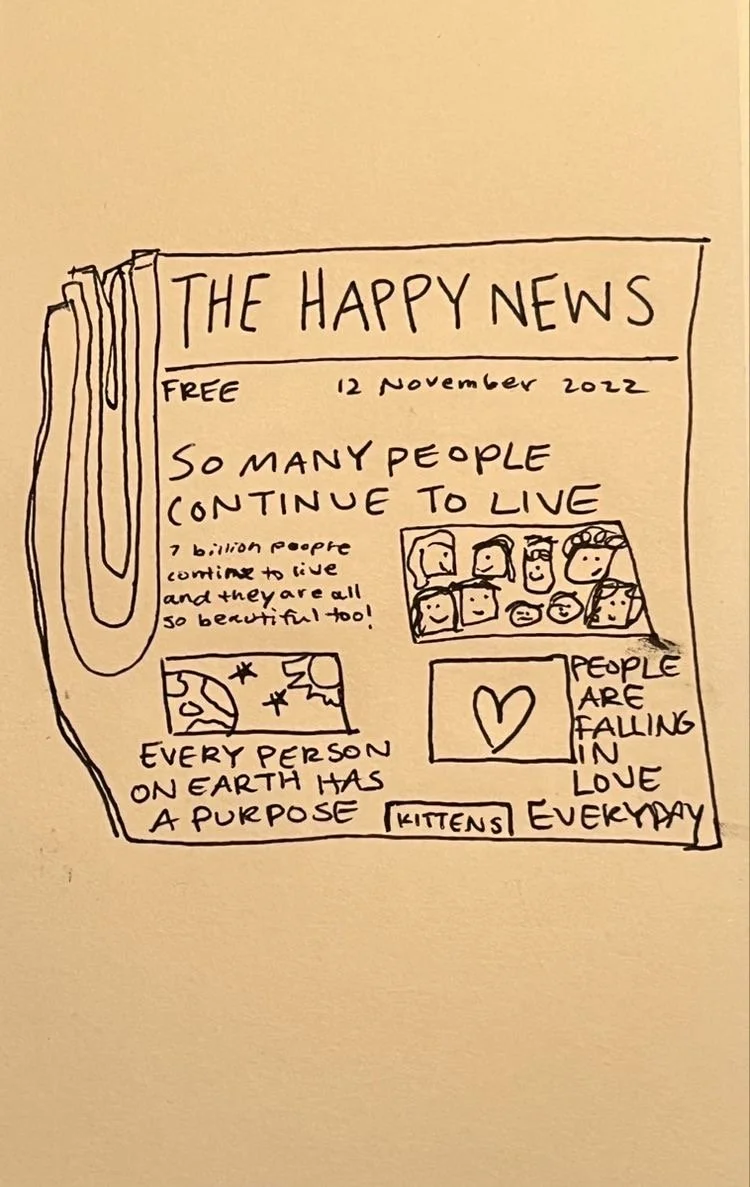 THE HAPPY NEWS
FREE 12 November 2022
SO MANY PEOPLE
CONTINUE TO LIVE
7 billion people
continue to live
and they are all
so beautiful too!
EVERY PERSON
ON EARTH HAS
A PURPOSE
PEOPLE
ARE
FALLING
IN
LOVE
EVERYDAY
KITTENS